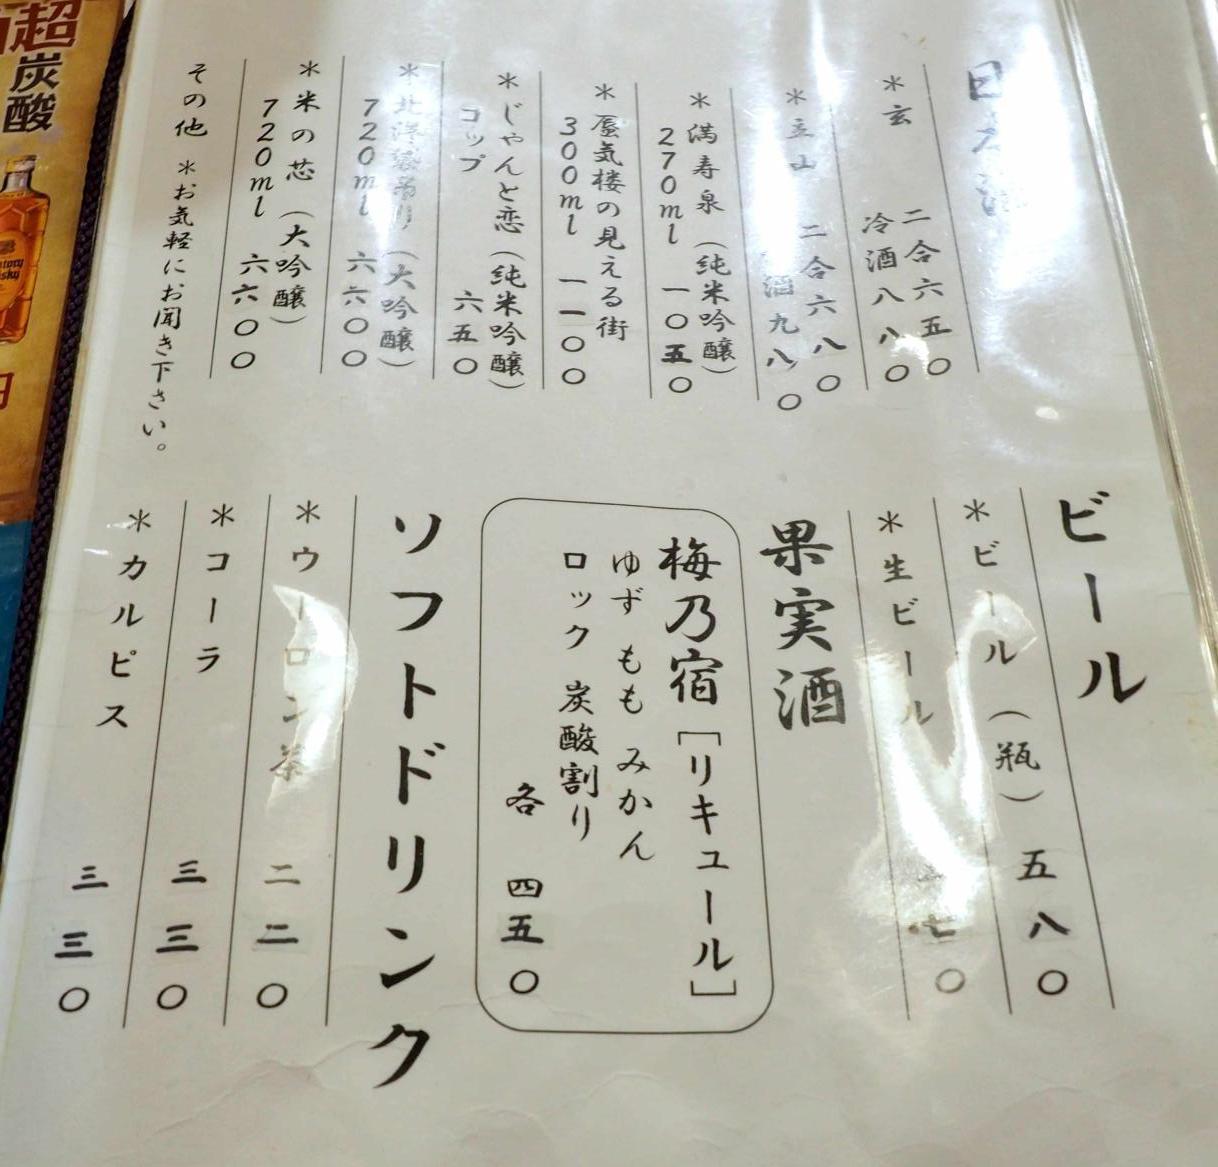 日本酒
＊玄 二合六五〇
冷酒八八〇
＊立山 二合六八〇
酒九八〇
＊満寿泉（純米吟醸）
270ml 一〇五〇
＊蜃気楼の見える街
300ml 一一〇〇
＊じゃんと恋（純米吟醸）
コップ 六五〇
（大吟醸）
720ml 六六〇〇
＊米の芯（大吟醸）
720ml 六六〇〇
その他 ＊お気軽にお聞き下さい。
ビール
＊ビール（瓶）五八〇
＊生ビール 七〇
果実酒
梅乃宿［リキュール］
ゆず もも みかん
ロック 炭酸割り
各 四五〇
ソフトドリンク
＊ウーロン茶 二二〇
＊コーラ 三三〇
＊カルピス 三三〇
超
炭酸